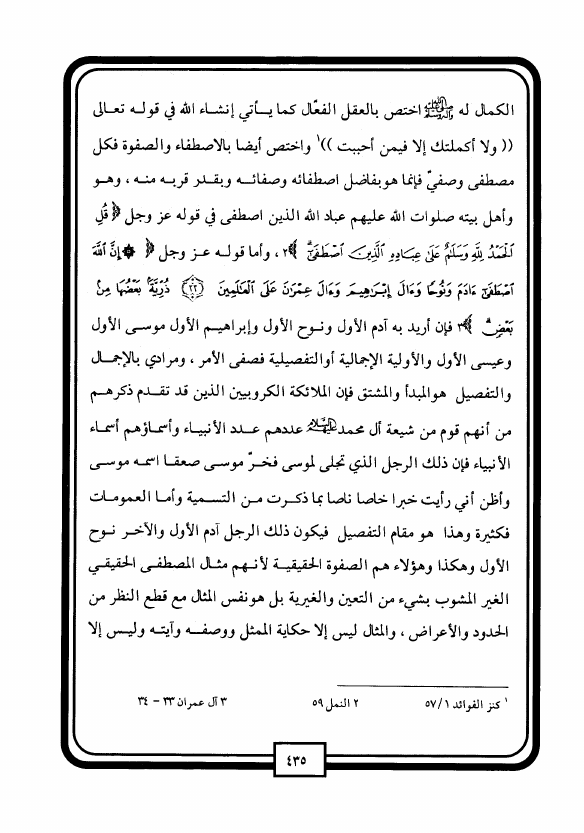 الكمال له ﷺ اختص بالعقل الفعّال كما يأتي إنشاء الله في قوله تعالى
(( ولا أكملتك إلا فيمن أحببت ))١ واختص أيضا بالاصطفاء والصفوة فكل
مصطفى وصفيّ فإنما هو بفاضل اصطفائه وصفائه وبقدر قربه منه ، وهو
وأهل بيته صلوات الله عليهم عباد الله الذين اصطفى في قوله عز وجل ﴿ قُلِ
الْحَمْدُ لِلَّهِ وَسَلَامٌ عَلَى عِبَادِهِ الَّذِينَ اصْطَفَى ﴾٢ ، وأما قوله عز وجل ﴿ ۞ إِنَّ اللَّهَ
اصْطَفَى ءَادَمَ وَنُوحًا وَءَالَ إِبْرَاهِيمَ وَءَالَ عِمْرَانَ عَلَى الْعَالَمِينَ ٣٣ ذُرِّيَّةً بَعْضُهَا مِنْ
بَعْضٍ ﴾٣ فإن أريد به آدم الأول ونوح الأول وإبراهيم الأول موسى الأول
وعيسى الأول والأولية الإجمالية أوالتفصيلية فصفى الأمر ، ومرادي بالإجمال
والتفصيل هوالمبدأ والمشتق فإن الملائكة الكروبيين الذين قد تقدم ذكرهم
من أنهم قوم من شيعة أل محمد عددهم عدد الأنبياء وأسماؤهم أسماء
الأنبياء فإن ذلك الرجل الذي تجلى لموسى فخرّ موسى صعقا اسمه موسى
وأظن أني رأيت خبرا خاصا ناصا بما ذكرت من التسمية وأما العمومات
فكثيرة وهذا هو مقام التفصيل فيكون ذلك الرجل آدم الأول والآخر نوح
الأول وهكذا وهؤلاء هم الصفوة الحقيقية لأنهم مثال المصطفى الحقيقي
الغير المشوب بشيء من التعين والغيرية بل هونفس المثال مع قطع النظر من
الحدود والأعراض ، والمثال ليس إلا حكاية الممثل ووصفه وآيته وليس إلا
١ كنز الفوائد ٥٧/١ ٢ النمل ٥٩ ٣ آل عمران ٣٣ – ٣٤
٤٣٥